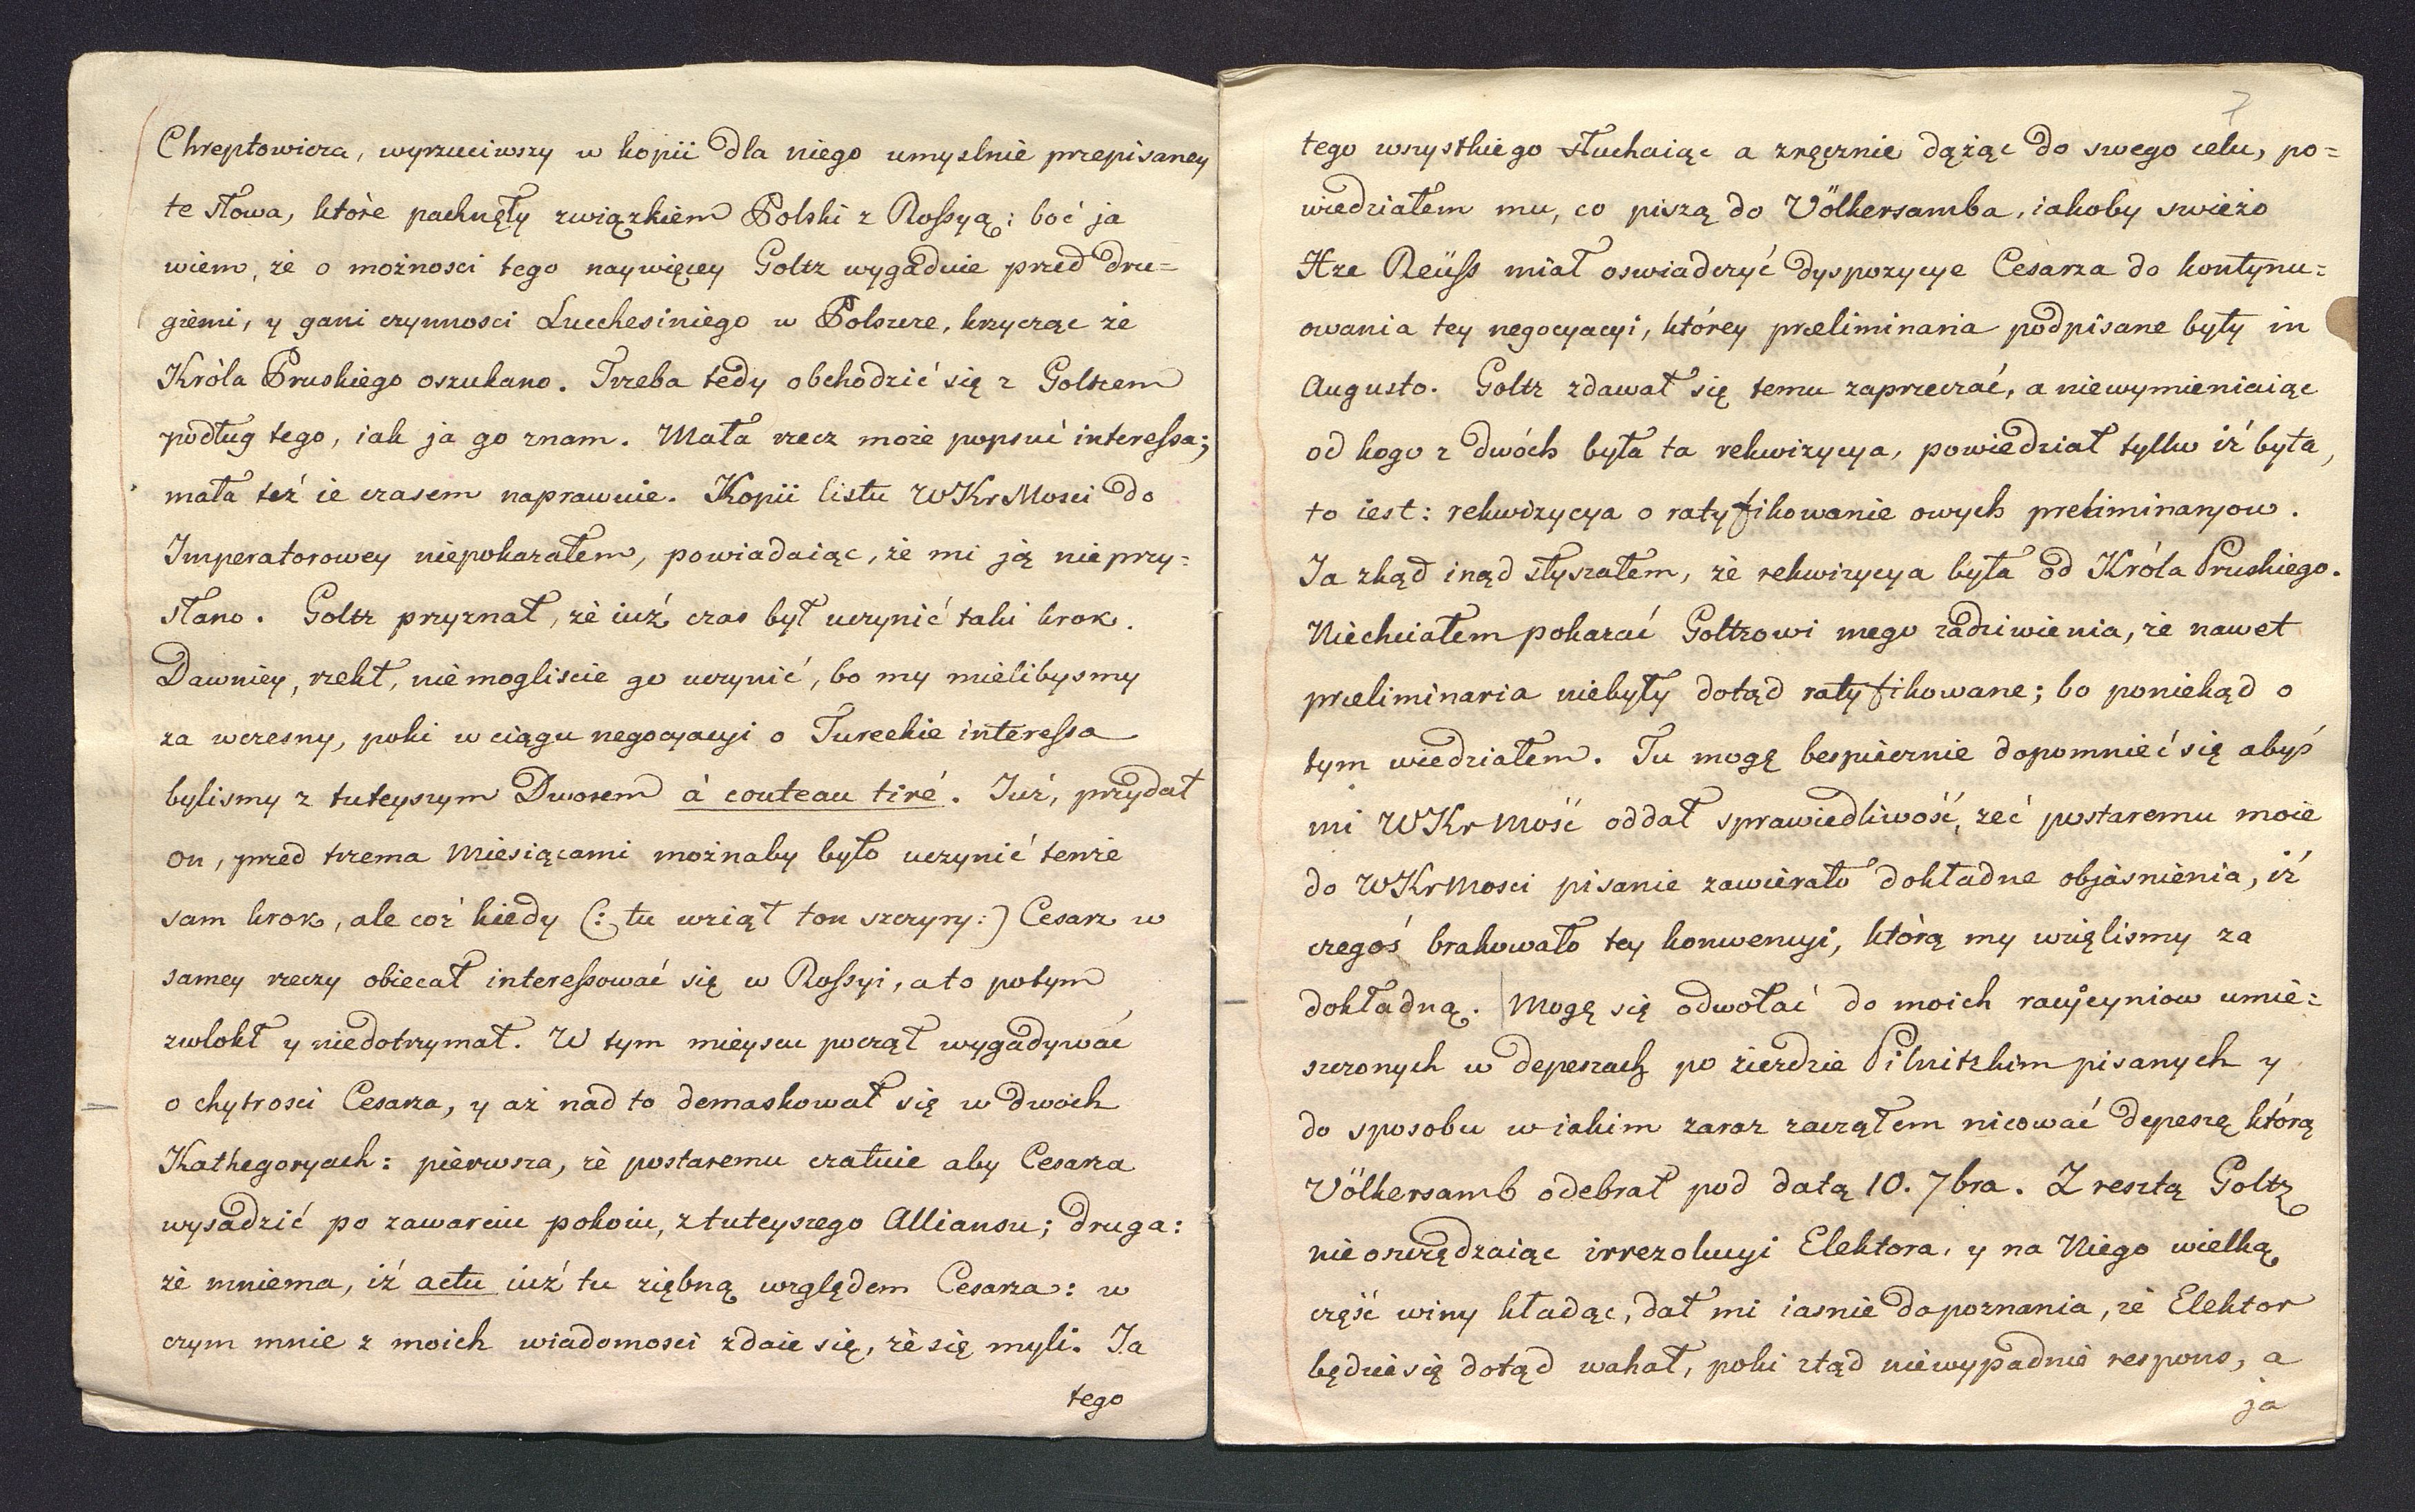 Chreptowicza, wyrzuciwszy w kopii dla niego umyslnie przepisaney
te słowa, ktòre pachnęły związkiem Polski z Rossyą: boć ja
wiem, że o możnosci tego naywięcey Goltz wygaduie przed dru=
giemi, y gani czynnosci Lucchesiniego w Polszcze, krzycząc że
Kròla Pruskiego oszukano. Trzeba tedy obchodzić się z Goltzem
podług tego, iak ja go znam. Mała rzecz może popsuć interessa;
mała też ie czasem naprawuie. Kopii listu WKrMosci do
Imperatorowey niepokazałem, powiadaiąc, że mi ją nieprzy=
słano. Goltz przyznał, że iuż czas był uczynić taki krok.
Dawniey, rzekł, niemogliscie go uczynić, bo my mielibysmy
za wczesny, poki w ciągu negocyacyi o Tureckie interessa
bylismy z tuteyszym Dworem à couteau tiré. Już, przydał
on, przed trzema Miesiącami możnaby było uczynić tenże
sam krok, ale coż kiedy (: tu wziął ton szczyry:) Cesarz w
samey rzeczy obiecał interessować się w Rossyi, a to potym
zwlokł y niedotrzymał. W tym mieyscu począł wygadywać
o chytrosci Cesarza, y aż nad to demaskował się w dwoch
Kathegoryach: pierwsza, że postaremu czatuie aby Cesarza
wysadzić po zawarciu pokoiu, z tuteyszego Alliansu; druga:
że mniema, iż actu iuż tu ziębną względem Cesarza: w
czym mnie z moich wiadomosci zdaie się, że się myli. Ja
tego
7
tego wszystkiego słuchaiąc a zręcznie dążąc do swego celu, po=
wiedziałem mu, co piszą do Völkersamba, iakoby swieżo
Xze Reüss miał oswiadczyć dyspozycye Cesarza do kontynu=
owania tey negocyacyi, którey præliminaria podpisane były in
Augusto. Goltz zdawał się temu zaprzeczać, a niewymieniaiąc
od kogo z dwóch była ta rekwizycya, powiedział tylko iż była,
to iest: rekwizycya o ratyfikowanie owych preliminaryow.
Ja zkąd inąd słyszałem, że rekwizycya była od Króla Pruskiego.
Niechciałem pokazać Goltzowi mego zadziwienia, że nawet
præliminaria niebyły dotąd ratyfikowane; bo poniekąd o
tym wiedziałem. Tu mogę bespiecznie dopomnieć się abyś
mi WKrMość oddał sprawiedliwość, żeć postaremu moie
do WKrMosci pisanie zawierało dokładne objasnienia, iż
czegoś brakowało tey konwencyi, którą my wzięlismy za
dokładną. Mogę się odwołać do moich racyocyniow umie=
szczonych w depeszach po zieździe Pilnitzkim pisanych y
do sposobu w iakim zaraz zacząłem nicować depeszę którą
Völkersamb odebrał pod datą 10. 7bra. Z resztą Goltz
nieoszczędzaiąc irrezolucyi Elektora, y na Niego wielką
część winy kładąc, dał mi iasnie do poznania, że Elektor
będzie się dotąd wahał, poki ztąd niewypadnie respons, a
ja